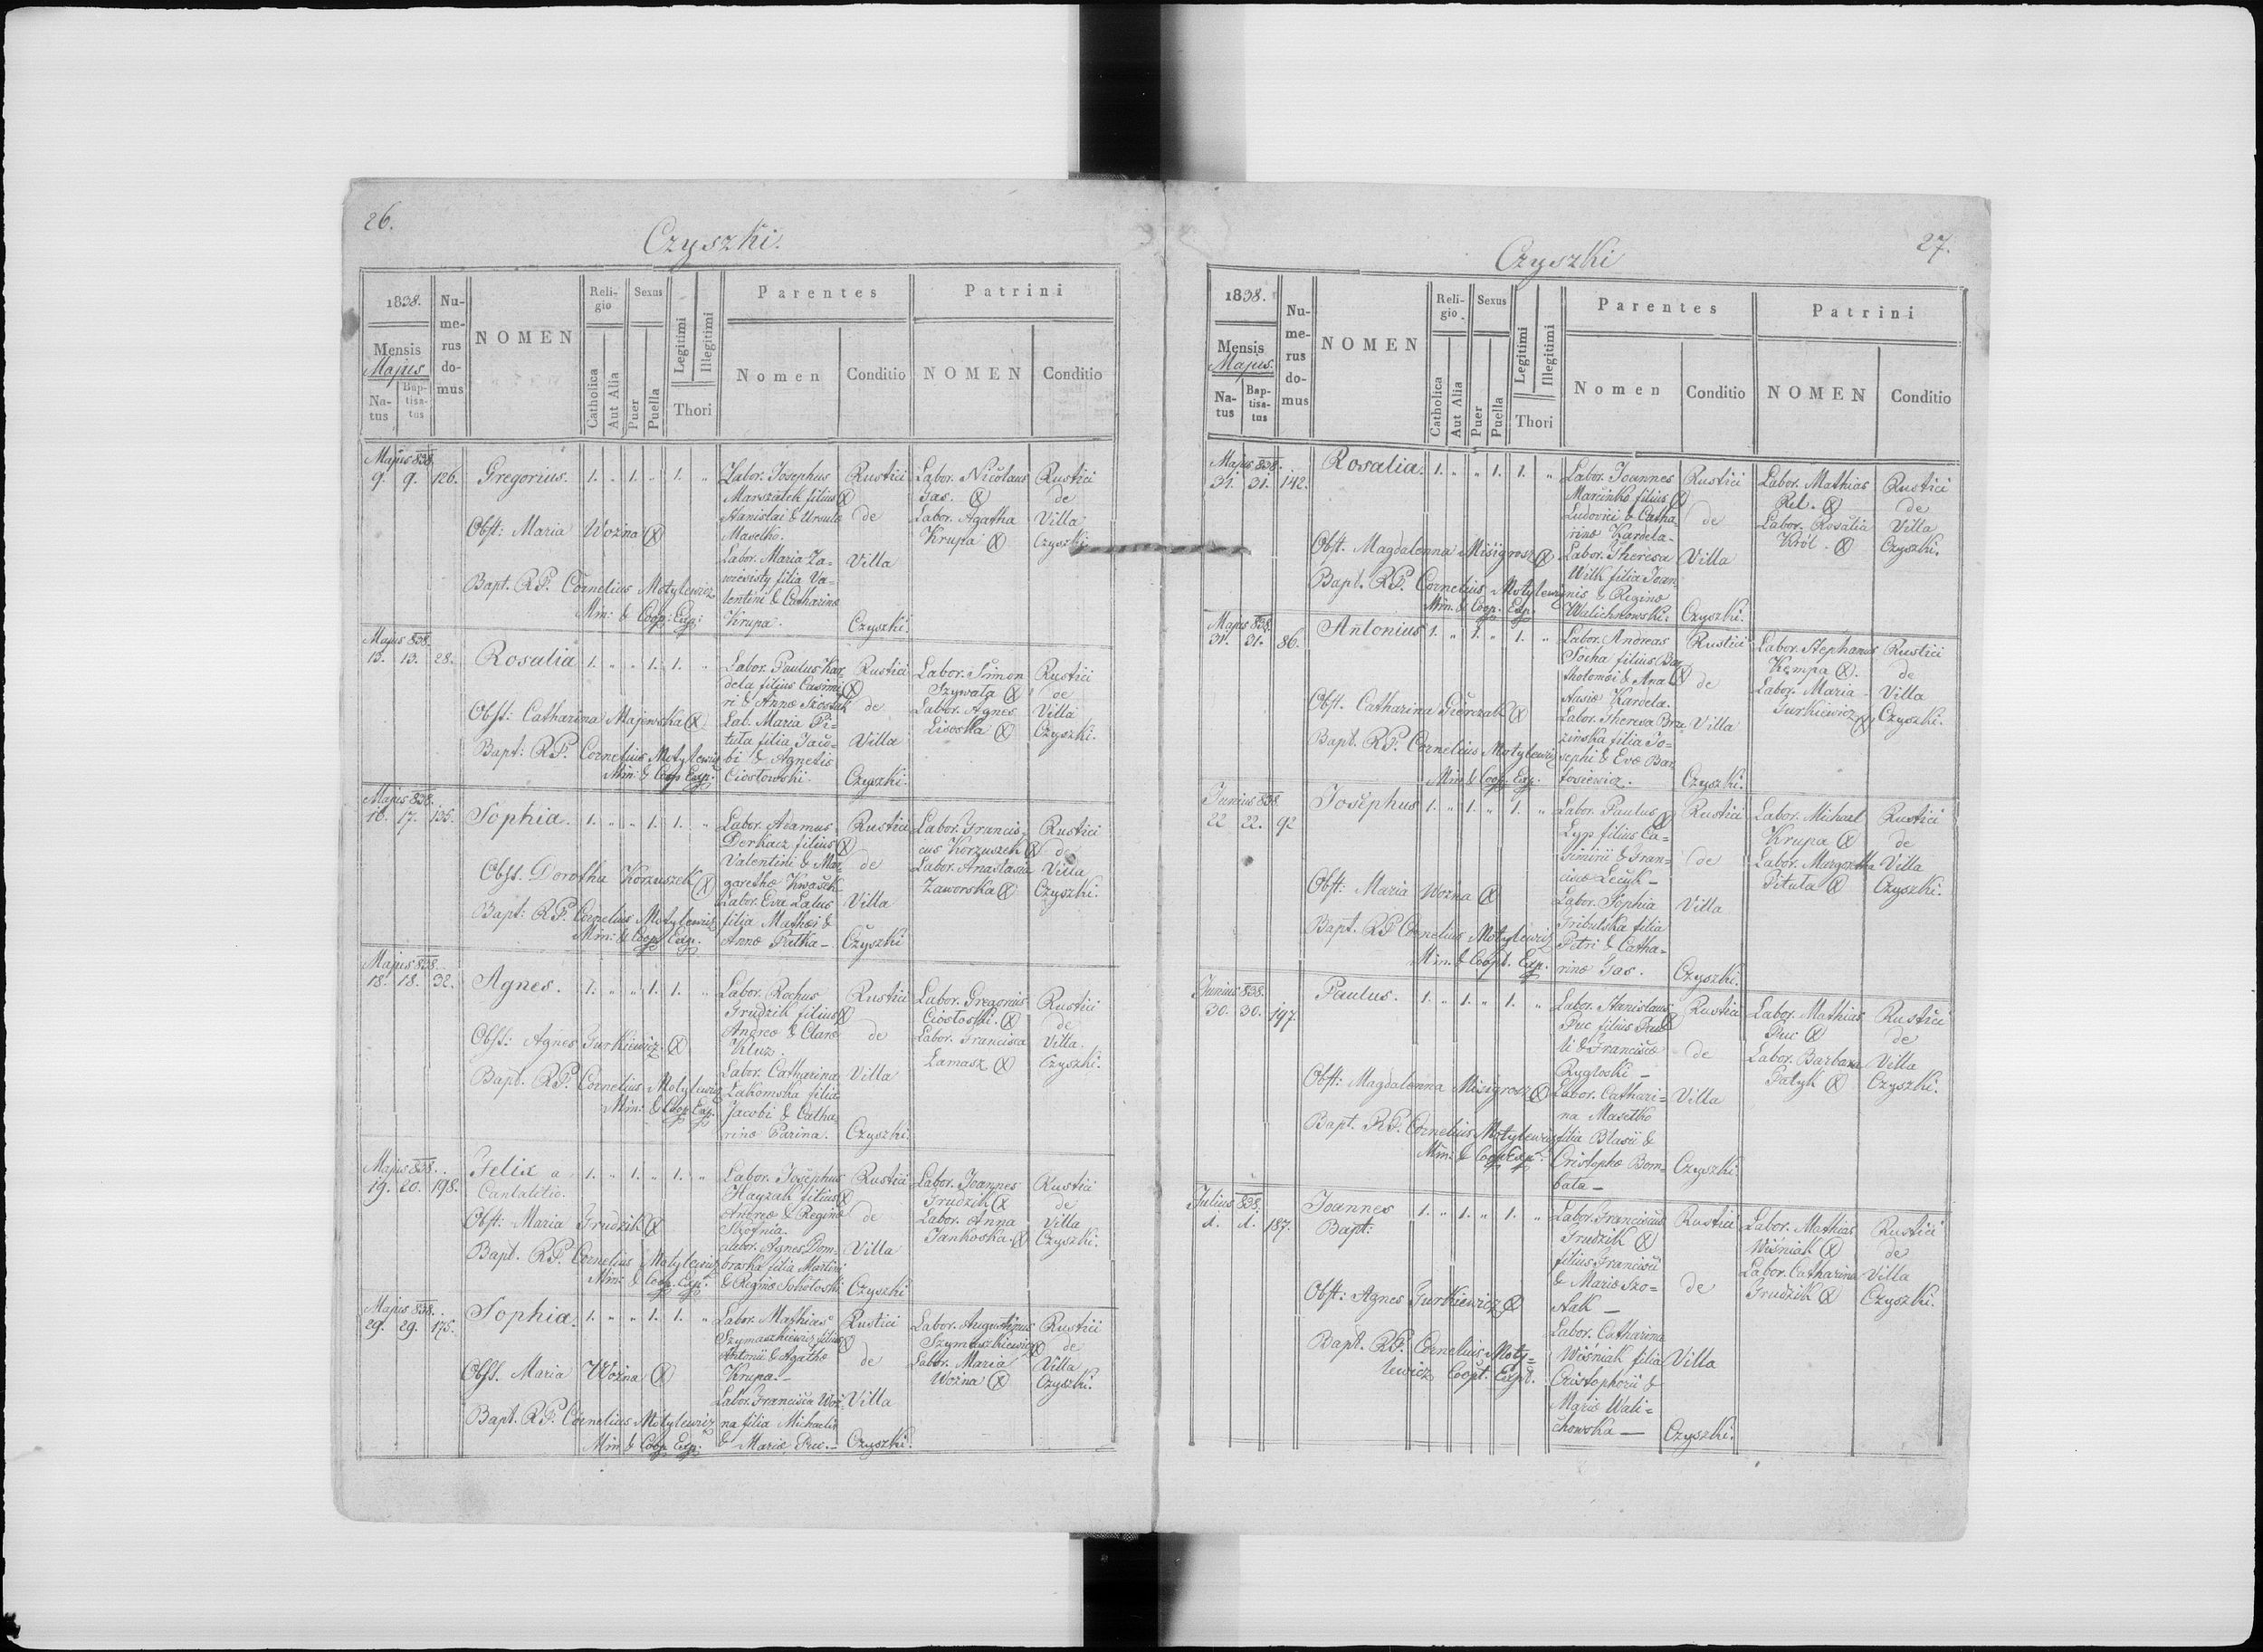 26.
Czyszki.
1838.
Mensis
Majus
Na-
tus
Bap-
tisa-
tus
Nu-
me-
rus
do-
mus
NOMEN
Reli-
gio
Catholica
Aut Alia
Sexus
Puer
Puella
Legitimi
Illegitimi
Thori
Parentes
Nomen
Conditio
Patrini
NOMEN
Conditio
Majus 838.
9. 9. 126. Gregorius. 1. „ 1. „ 1. „
Obst: Maria Woźna (X)
Bapt. RP. Cornelius Motylewicz
Min: & Coop: Exp:
Labor. Josephus
Marszałek filius (X)
Stanislai & Ursulæ
Masełko.
Labor. Maria Za-
wiewisty filia Va-
lentini & Catharinæ
Krupa.
Rustici
de
Villa
Czyszki.
Labor. Nicolaus
Gas. (X)
Labor. Agatha
Krupa (X)
Rustici
de
Villa
Czyszki.
Majus 838.
13. 13. 28. Rosalia 1. „ „ 1. 1. „
Obst: Catharina Majewska (X)
Bapt: RP. Cornelius Motylewicz
Min: & Coop Exp:
Labor. Paulus Kar-
dela filius Casimi- (X)
ri & Annæ Szostak
Lab. Maria Pi-
tuła filia Jaco-
bi & Agnetis
Ciosłowski.
Rustici
de
Villa
Czyszki.
Labor. Simon
Szywała (X)
Labor. Agnes
Lisoska (X)
Rustici
de
Villa
Czyszki.
Majus 838.
16. 17. 135. Sophia. 1. „ „ 1. 1. „
Obst. Dorotha Korzuszek (X)
Bapt: RP. Cornelius Motylewicz
Min: & Coop Exp.
Labor. Adamus
Derkacz filius (X)
Valentini & Mar-
garethæ Kwaśek
Labor. Eva Latus
filia Mathæi &
Annæ Pałka –
Rustici
de
Villa
Czyszki
Labor. Francis-
cus Korzuszek (X)
Labor. Anastasia
Zaworska (X)
Rustici
de
Villa
Czyszki.
Majus 838.
18. 18. 32. Agnes. 1. „ „ 1. 1. „
Obst: Agnes Gurkiewicz (X)
Bapt. RP. Cornelius Motylewicz
Min: & Coop Exp.
Labor. Rochus
Grudzik filius (X)
Andreæ & Claræ
Kluz.
Labor. Catharina
Łakomska filia
Jacobi & Catha
rinæ Parina.
Rustici
de
Villa
Czyszki.
Labor. Gregorius
Ciosłoski. (X)
Labor. Francisca
Łamasz (X)
Rustici
de
Villa.
Czyszki.
Majus 838.
19. 20. 198. Felix a 1. „ 1. „ 1. „
Cantalitio.
Obst: Maria Grudzik (X)
Bapt. RP. Cornelius Motylewicz
Min: & Coop. Exp:
Labor. Josephus
Hayzak filius (X)
Andreæ & Reginæ
Skofnia.
Labor. Agnes Dom-
broska filia Martini
& Reginæ Sokołoski
Rustici
de
Villa
Czyszki
Labor. Joannes
Grudzik (X)
Labor. Anna
Jankoska. (X)
Rustici
de
Villa
Czyszki.
Majus 838.
29. 29. 175. Sophia. 1. „ „ 1. 1. „
Obst. Maria Woźna (X)
Bapt. RP. Cornelius Motylewicz
Min & Coop Exp.
Labor. Mathias
Szymaszkiewicz filius (X)
Antonii & Agathæ
Krupa. –
Labor. Francisca Woź-
na filia Michaelis
& Mariæ Puc. –
Rustici
de
Villa
Czyszki.
Labor. Augustinus
Szymaszkiewicz (X)
Labor. Maria
Woźna (X)
Rustici
de
Villa
Czyszki.
27.
Czyszki
1838.
Mensis
Majus.
Na-
tus
Bap-
tisa-
tus
Nu-
me-
rus
do-
mus
NOMEN
Reli-
gio.
Catholica
Aut Alia
Sexus
Puer
Puella
Legitimi
Illegitimi
Thori
Parentes
Nomen
Conditio
Patrini
NOMEN
Conditio
Majus 838.
31. 31. 142. Rosalia. 1. „ „ 1. 1. „
Obst. Magdalenna Misigrosz (X)
Bapt. RP. Cornelius Motylewicz
Min. & Coop. Exp.
Labor. Joannes
Marcinko filius (X)
Ludovici & Catha
rinæ Kardela –
Labor. Theresa
Wilk filia Joan
nis & Reginæ
Walichnowski.
Rustici
de
Villa
Czyszki.
Labor. Mathias
Rel. (X)
Labor. Rosalia
Król. (X)
Rustici
de
Villa
Czyszki.
Majus 838.
31. 31. 86. Antonius 1. „ 1. „ 1. „
Obst. Catharina Górczak (X)
Bapt. RP. Cornelius Motylewicz
Min & Coop. Exp.
Labor. Andreas
Socha filius Bar
tholomæi & Ana (X)
stasiæ Kardela.
Labor. Theresa Brze-
zinska filia Jo-
sephi & Evæ Bar
tosiewicz.
Rustici
de
Villa
Czyszki.
Labor. Stephanus
Kępa (X).
Labor. Maria
Gurkiewicz (X)
Rustici
de
Villa
Czyszki.
Junius 838.
22 22. 92 Josephus 1. „ 1. „ 1. „
Obst: Maria Woźna (X)
Bapt. RP Cornelius Motylewicz
Min. & Coopt. Exp.
Labor. Paulus (X)
Łyp filius Ca-
simirii & Fran-
ciscæ Leczyk –
Labor. Sophia
Tribulska filia
Petri & Catha-
rinæ Gas.
Rustici
de
Villa
Czyszki.
Labor. Michael
Krupa (X)
Labor. Margaretha
Pituła (X)
Rustici
de
Villa
Czyszki.
Junius 838.
30. 30. 197. Paulus. 1. „ 1. „ 1. „
Obst: Magdalenna Misigrosz (X)
Bapt. RP. Cornelius Motylewicz
Min: & Coop Exp:
Labor. Stanislaus
Puc filius Pau- (X)
li & Franciscæ
Rygłoski –
Labor. Cathari-
na Masełko
filia Blasii &
Cristophæ Bom-
bała –
Rustici
de
Villa
Czyszki
Labor. Mathias
Puc (X)
Labor. Barbara
Patyk (X)
Rustici
de
Villa
Czyszki.
Julius 838.
1. 1. 187. Joannes 1. „ 1. „ 1. „
Bapt:
Obst: Agnes Gurkiewicz (X)
Bapt. RP. Cornelius Moty-
lewicz Coopt. Expt.
Labor. Franciscus
Grudzik (X)
filius Francisci
& Mariæ Szo-
stak –
Labor. Catharina
Wiśniak filia
Cristophorii &
Mariæ Wali-
chowska –
Rustici
de
Villa
Czyszki.
Labor. Mathias
Wiśniak (X)
Labor. Catharina
Grudzik (X)
Rustici
de
Villa
Czyszki.